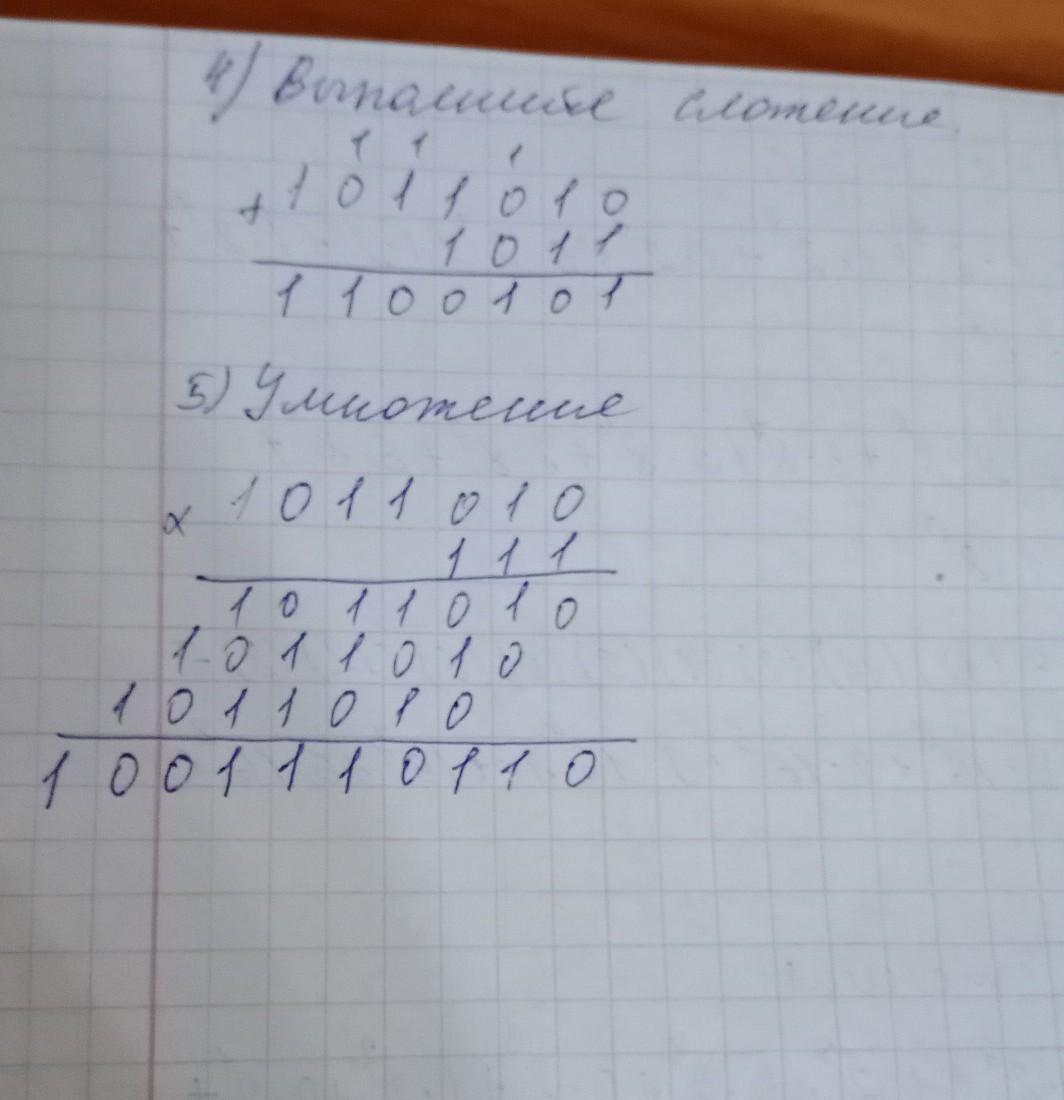 4) Выполните сложение
1 1 1
+ 1 0 1 1 0 1 0
1 0 1 1
1 1 0 0 1 0 1
5) Умножение
× 1 0 1 1 0 1 0
1 1 1
1 0 1 1 0 1 0
1 0 1 1 0 1 0
1 0 1 1 0 1 0
1 0 0 1 1 1 0 1 1 0